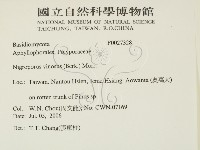 國立自然科學博物館
NATIONAL MUSEUM OF NATURAL SCIENCE
TAICHUNG, TAIWAN, R.O.CHINA
Basidiomycota
Aphyllophorales, Polyporaceae
Nigroporus vinosus (Berk.) Murr.
Loc.: Taiwan, Nantou Hsien, Jenai Hsiang, Aowanta
on rotten trunk of Pinus sp.
Col. W.N. Chou CWN 07169
Date: Jul 05, 2006
Det.: T.T. Chang